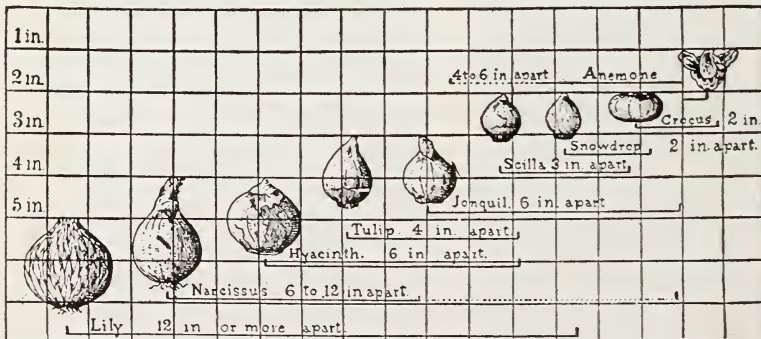 1 in.
2 in.
3 in.
4 in.
5 in.
4 to 6 in. apart Anemone
Crocus 2 in.
Snowdrop 2 in. apart.
Scilla 3 in. apart
Jonquil. 6 in. apart.
Tulip. 4 in. apart.
Hyacinth. 6 in apart.
Narcissus 6 to 12 in apart.
Lily 12 in or more apart.